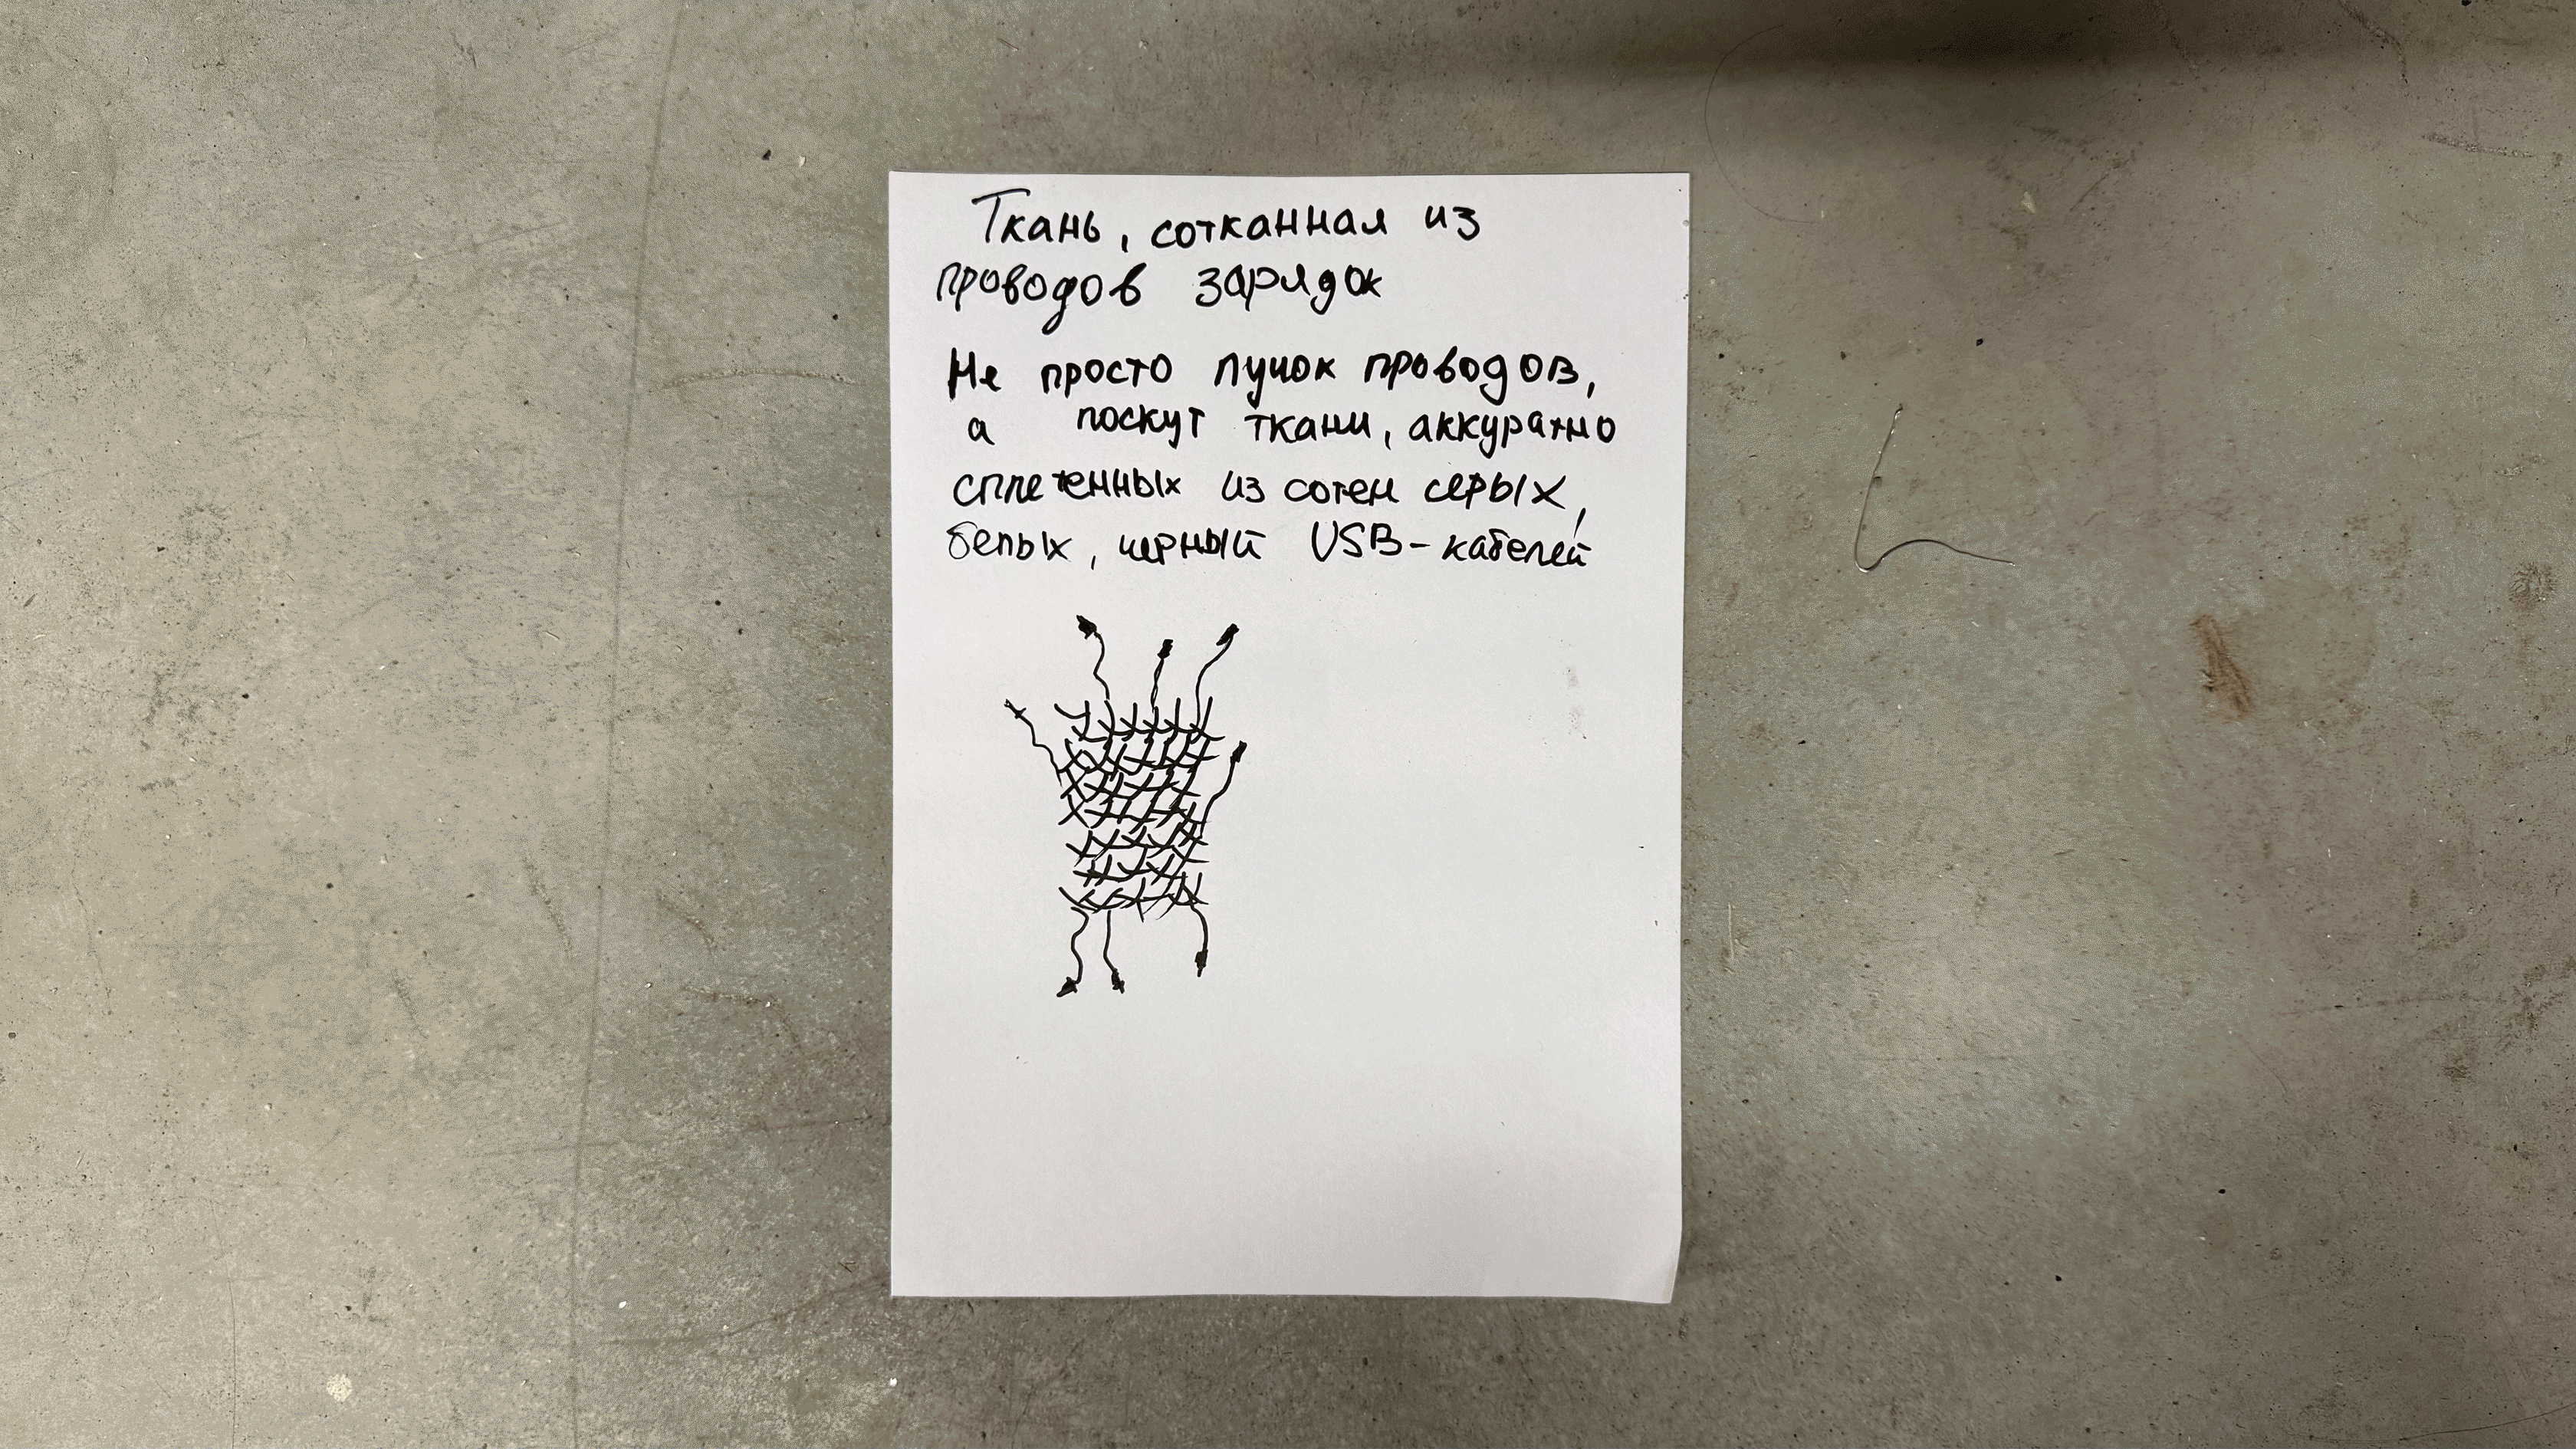 Ткань, сотканная из
проводов зарядок
Не просто пучок проводов,
а лоскут ткани, аккуратно
сплетенных из сотен серых,
белых, черный USB-кабелей